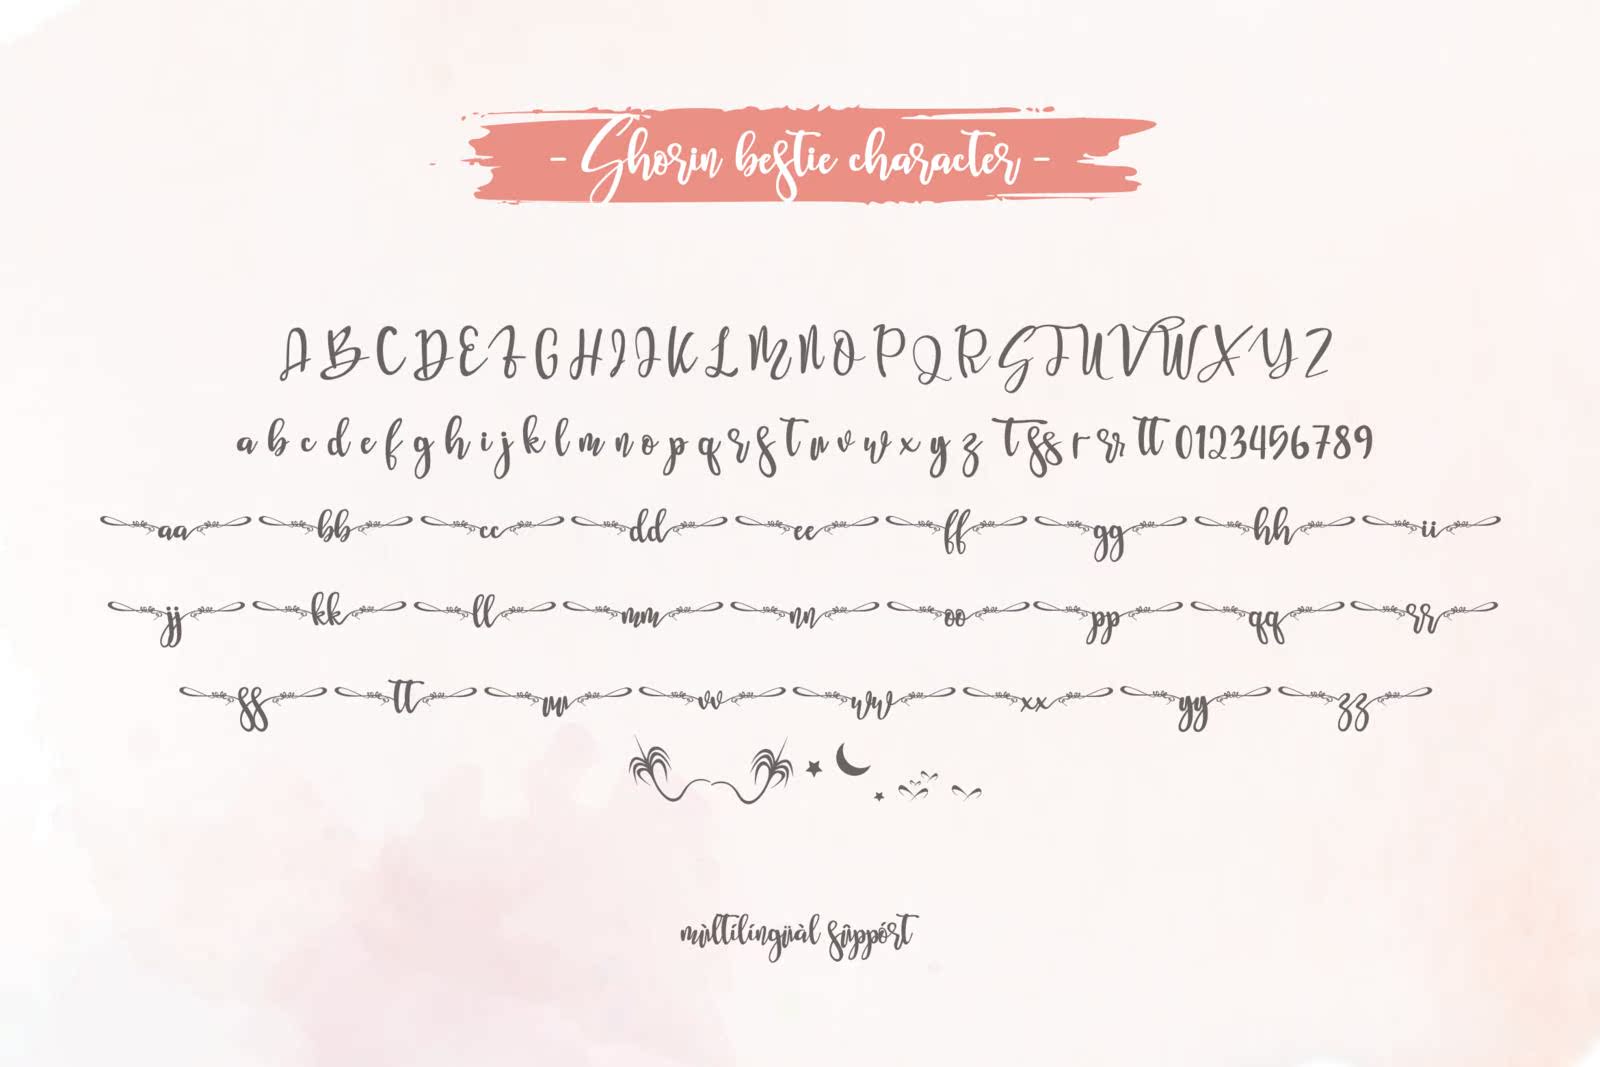 - Shorin bestie character -
A B C D E F G H I J K L M N O P Q R S T U V W X Y Z
a b c d e f g h i j k l m n o p q r s t u v w x y z T ss r rr tt 0123456789
aa bb cc dd ee ff gg hh ii
jj kk ll mm nn oo pp qq rr
ss tt uu vv ww xx yy zz
mùltilíngüàl sûppórt